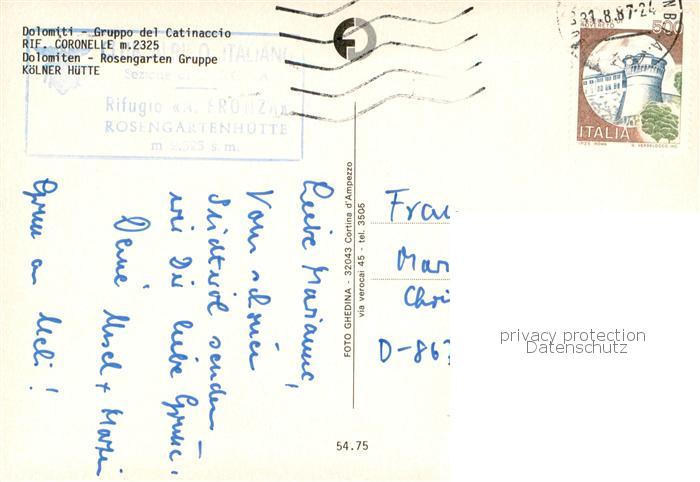 Dolomiti - Gruppo del Catinaccio
RIF. CORONELLE m.2325
Dolomiten - Rosengarten Gruppe
KöLNER HÜTTE
ITALIANO
Rifugio «A. FRONZA»
ROSENGARTENHÜTTE
m 2.325 s. m.
31.8.87-24
500
ITALIA
I.P.Z.S. ROMA
Liebe Marianne,
Vom schönen
Südtirol senden
wir Dir liebe Grüsse.
Deine Uschi + Martin
Gruss an Meli!
FOTO GHEDINA - 32043 Cortina d'Ampezzo
via verocai 45 - tel. 3505
Frau
Mar
Chri
D-863
privacy protection
Datenschutz
54.75